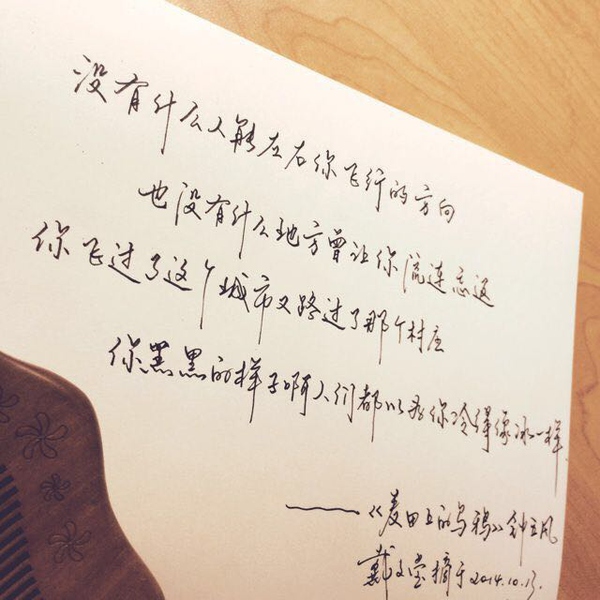 没有什么人能左右你飞行的方向
也没有什么地方曾让你流连忘返
你飞过了这个城市又路过了那个村庄
你黑黑的样子啊人们都以为你冷得像冰一样
——《麦田上的乌鸦》钟立风
戴文莹摘于2014.10.13.